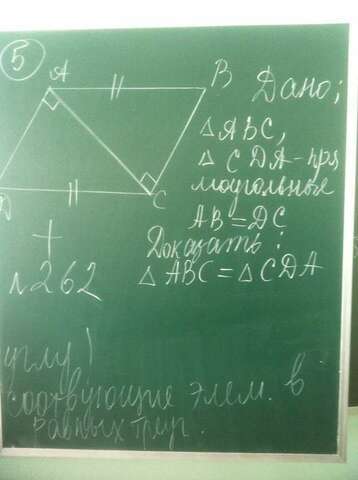 5
A
B
D
C
Дано;
△ABC,
△CDA-пря
моугольные
AB=DC
Доказать:
△ABC=△CDA
+
№262
углу)
элем. в
равных треуг.